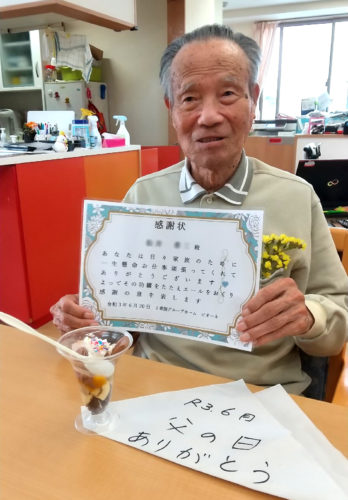 感謝状
殿
あなたは日々家族のために
一生懸命お仕事頑張ってくれて
ありがとうございます
よってその功績をたたえエールをおくり
感謝の意を表します
令和3年6月20日
R3.6月
父の日
ありがとう